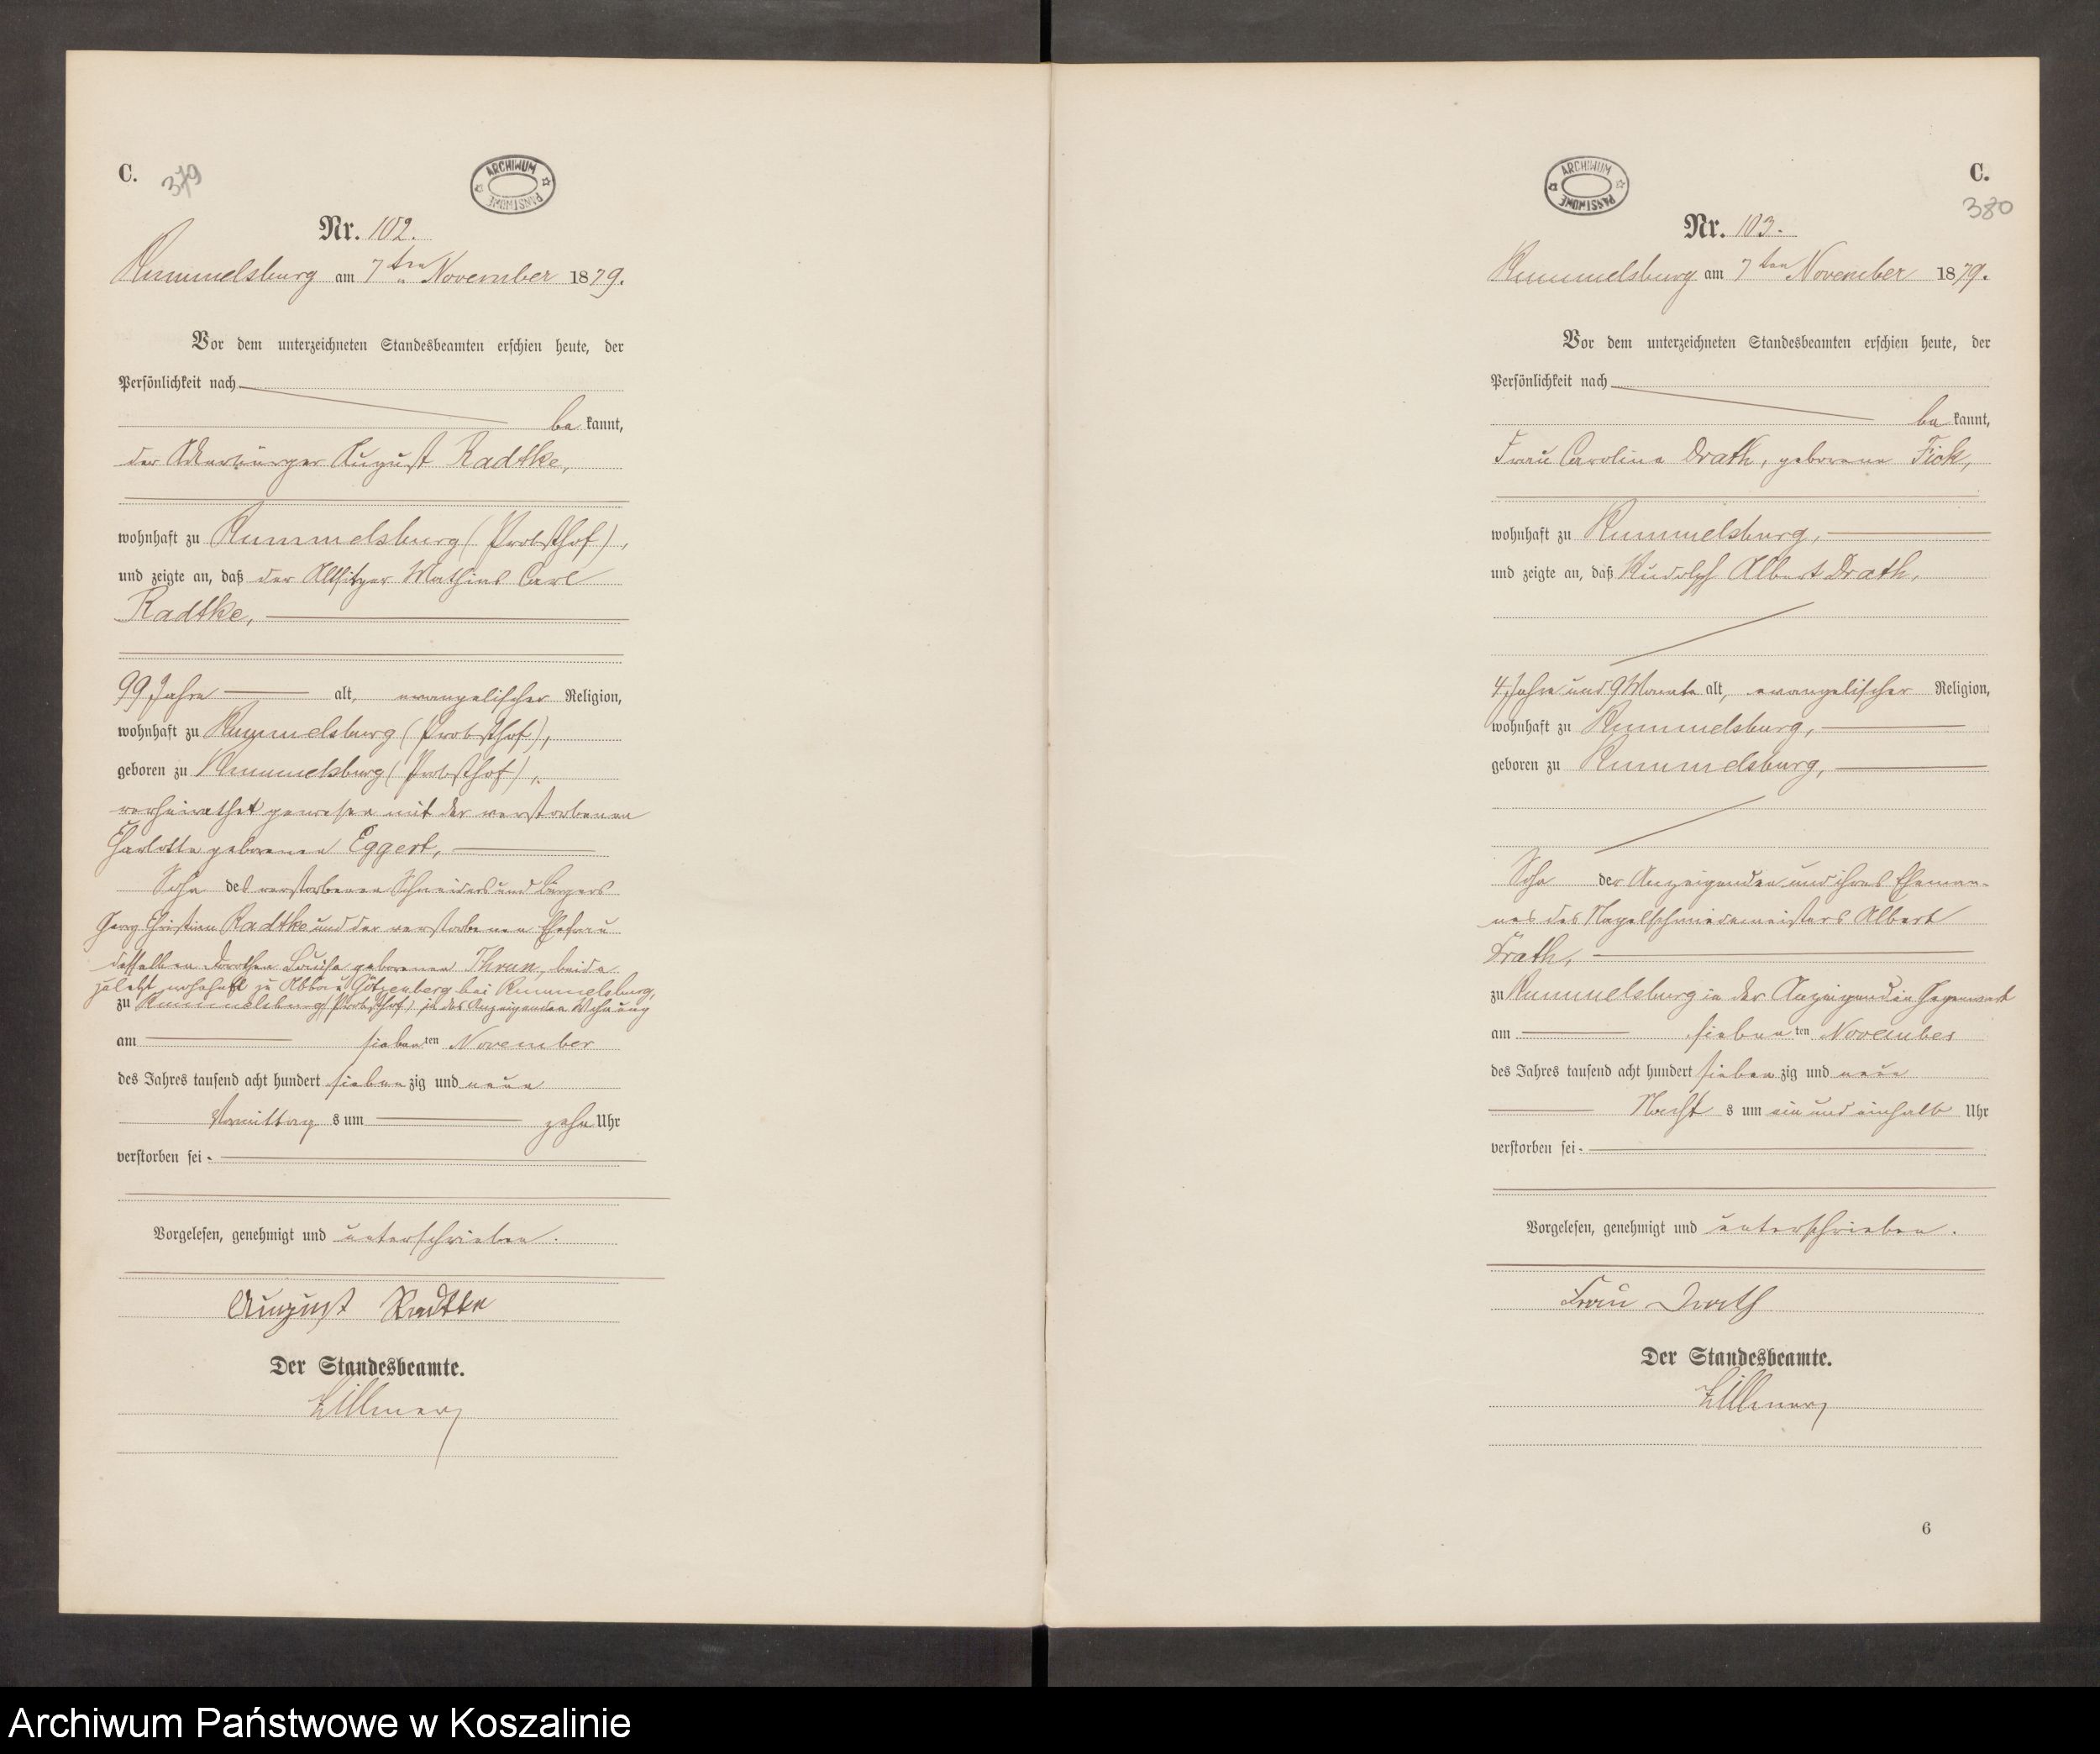 C.
379
ARCHIWUM PAŃSTWOWE
Nr. 102.
Rummelsburg am 7ten November 1879.
Vor dem unterzeichneten Standesbeamten erschien heute, der
Persönlichkeit nach
bekannt,
der Ackerbürger August Radtke,
wohnhaft zu Rummelsburg (Probsthof),
und zeigte an, daß der Altsitzer Mathias Carl
Radtke,
99 Jahre alt, evangelischer Religion,
wohnhaft zu Rummelsburg (Probsthof),
geboren zu Rummelsburg (Probsthof),
verheirathet gewesen mit der verstorbenen
Charlotte geborenen Eggert,
Sohn des verstorbenen Schneiders und Bürgers
Georg Christian Radtke und der verstorbenen Ehefrau
desselben Dorothea Louise geborenen Thrun, beide
zuletzt wohnhaft zu Götzenberg bei Rummelsburg,
zu Rummelsburg (Probsthof) in des Anzeigenden Wohnung
am siebenten November
des Jahres tausend acht hundert siebenzig und neun
Vormittags um zehn Uhr
verstorben sei.
Vorgelesen, genehmigt und unterschrieben.
August Radtke
Der Standesbeamte.
Zillmer
C.
380
ARCHIWUM PAŃSTWOWE
Nr. 103.
Rummelsburg am 7ten November 1879.
Vor dem unterzeichneten Standesbeamten erschien heute, der
Persönlichkeit nach
bekannt,
Frau Caroline Drath, geborene Fick,
wohnhaft zu Rummelsburg,
und zeigte an, daß Rudolph Albert Drath,
4 Jahre und 9 Monate alt, evangelischer Religion,
wohnhaft zu Rummelsburg,
geboren zu Rummelsburg,
Sohn der Anzeigenden und ihres Eheman-
nes des Nagelschmiedemeisters Albert
Drath,
zu Rummelsburg in der Anzeigendin Gegenwart
am siebenten November
des Jahres tausend acht hundert siebenzig und neun
Nachts um ein und einhalb Uhr
verstorben sei.
Vorgelesen, genehmigt und unterschrieben.
Frau Drath
Der Standesbeamte.
Zillmer
6
Archiwum Państwowe w Koszalinie